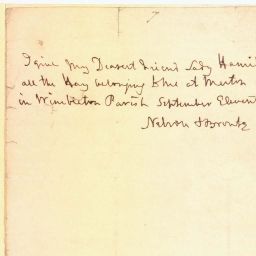 I give My Dearest friend Lady Hami
all the Hay belonging to me at Merton
in Wimbleton Parish September Elevent
Nelson & Bronte